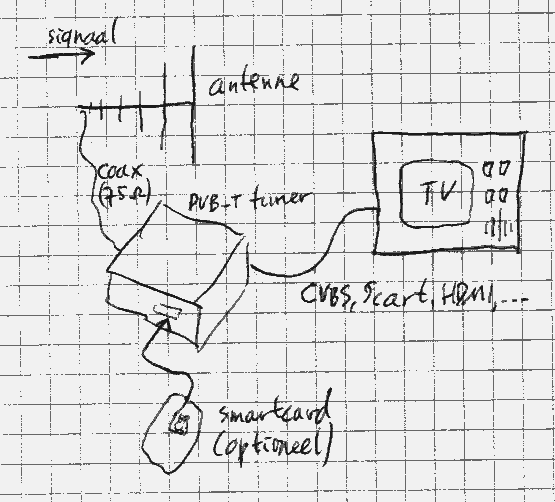 signaal
antenne
coax
(75Ω)
DVB-T tuner
TV
CVBS, Scart, HDMI, ...
smartcard
(optioneel)